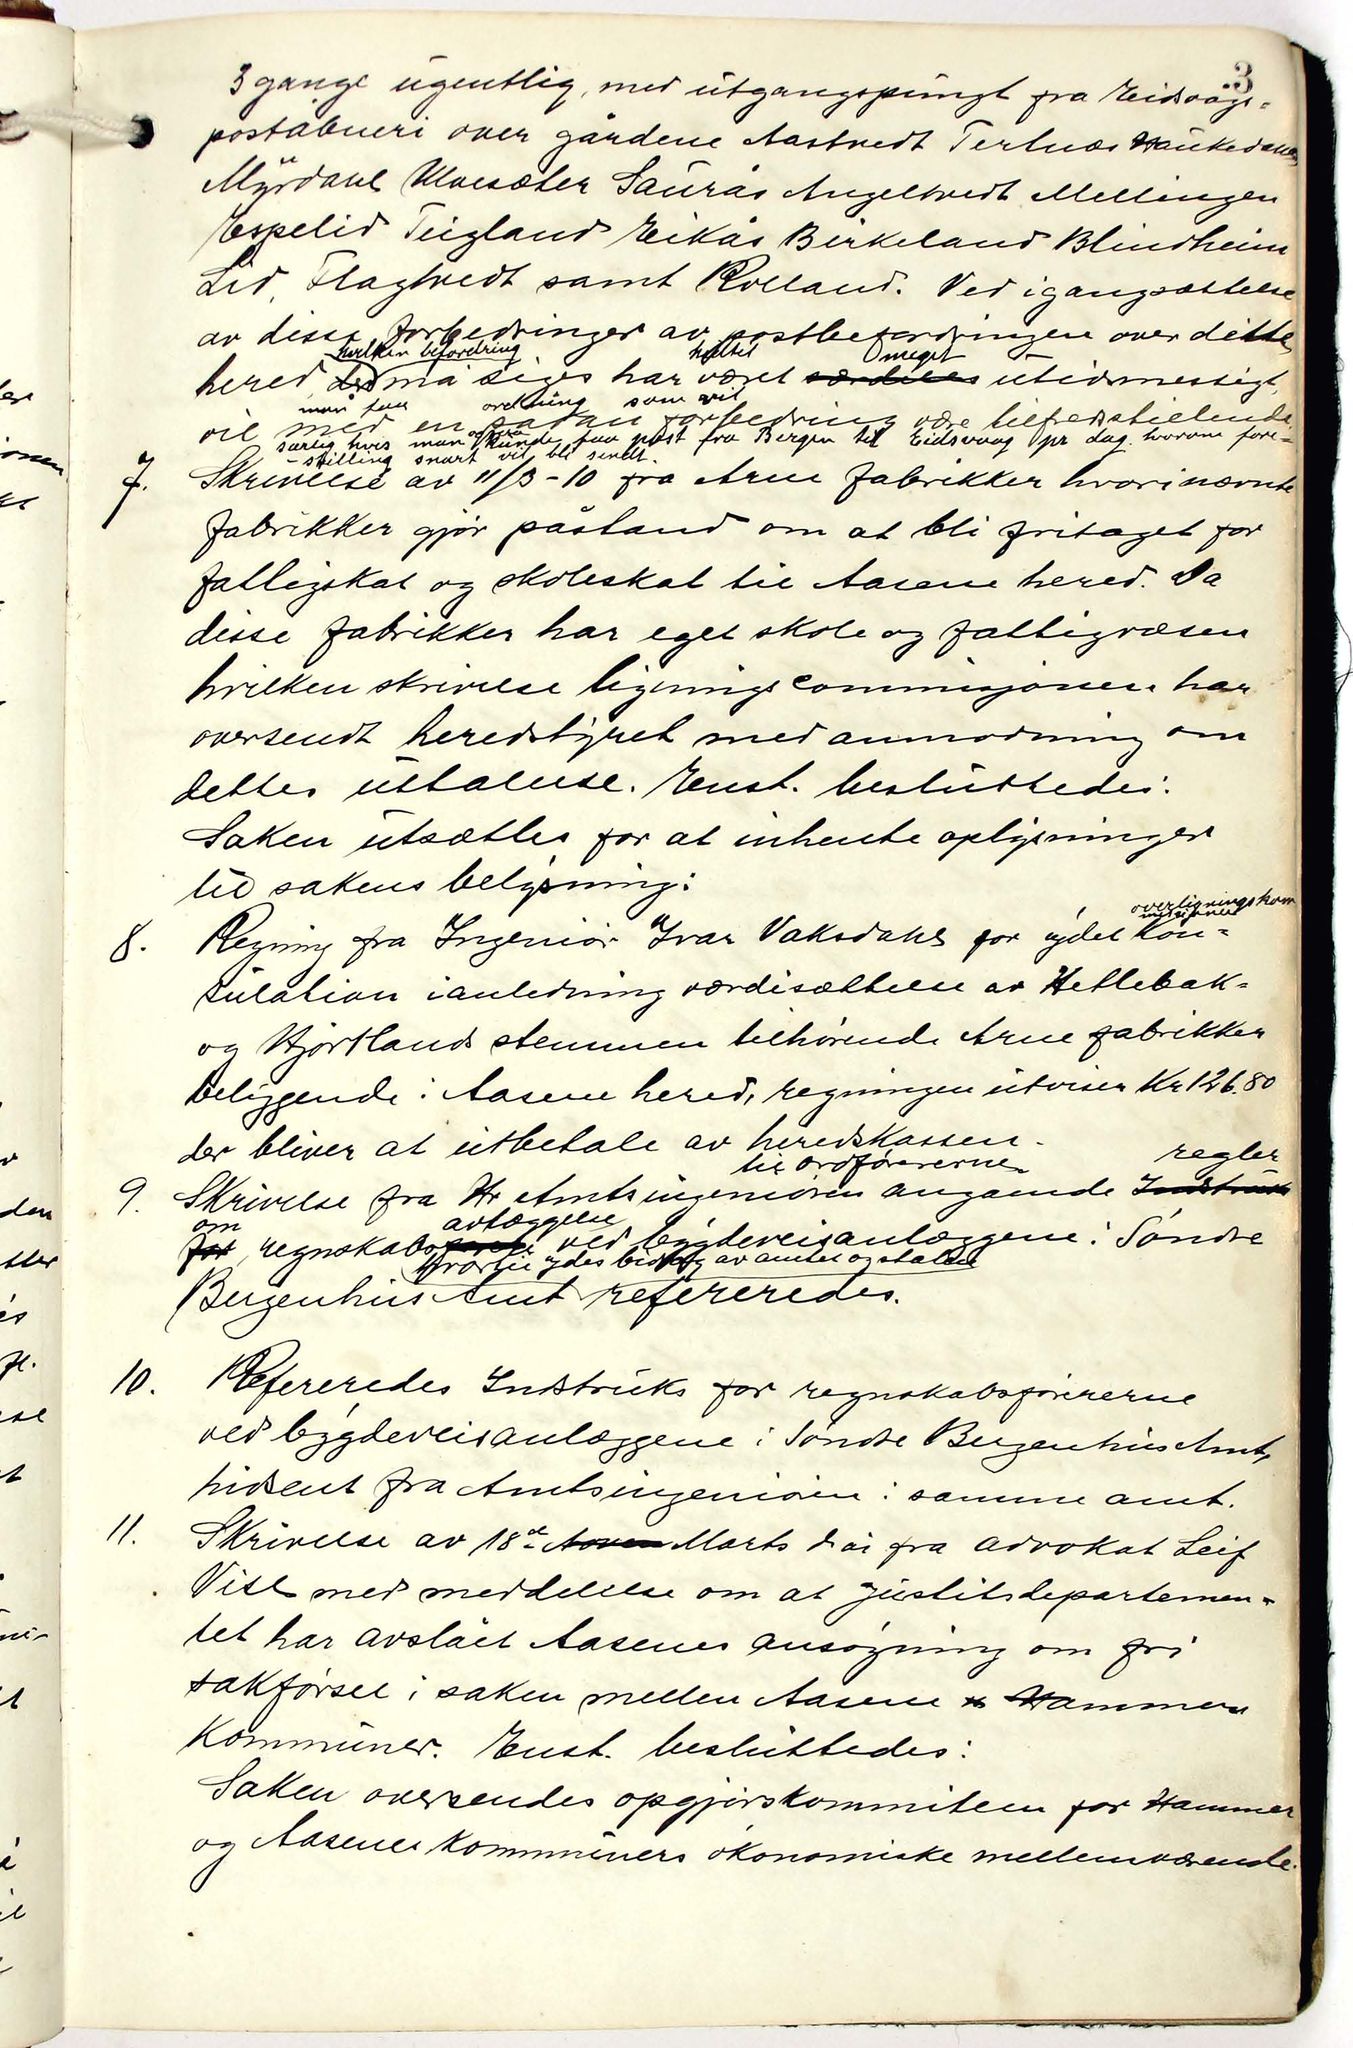 3
3 gange ugentlig, med utgangspungt fra Eidsvågs-
postabneri over gårdene Aastvedt Tertnæs Haukedalen
Myrdahl Ulvesæter Saurås Angeltvedt Mellingen
Espelid Teigland Eikås Birkeland Blindheim
Lid, Flagtvedt samt Rolland. Ved igangsættelse
av disse forbedringer av postbefordringen over dette
hvilken befordring hittil meget
hered, det må siges har været særdeles utidsmessigt,
man faa ordning som vil
vil med en sadan forbedring være tilfredsstielende
særlig hvis man ogsaa kunde faa post fra Bergen til Eidsvaag pr dag. hvorom fore-
stilling snart vil bli sendt.
7. Skrivelse av 11/3-10 fra Arne fabrikker hvori nævnte
fabrikker gjør påstand om at bli fritaget for
fattigskat og skoleskat til Aasene hered. Da
disse fabrikker har eget skole og fattigvæsen
hvilken skrivelse ligningscommisjonen har
oversendt heredstyret med anmodning om
dettes uttalelse. Enst. besluttedes:
Saken utsættes for at inhente oplysninger
til sakens belysning:
overligningskom
misjonen
8. Regning fra Ingeniør Ivar Vaksdahl for ydet kon-
sulation i anledning værdisættelse av Hetlebak-
og Hjortlands stemmen tilhørende Arne fabrikker
beliggende i Aasene hered, regningen utviser Kr 126.80
der bliver at utbetale av heredskassen.
til ordførerne regler
9. Skrivelse fra Hr Amtsingeniøren angaende Instruks
om avlæggelse
for regnskabs ved bygdeveisanlæggene i Søndre
hvortil ydes bidrag av amtet og staten
Bergenhus Amt refereredes.
10. Refereredes Indstruks for regnskabsførerne
ved bygdeveisanlæggene i Søndre Bergenhus Amt,
hidsent fra Amtsingeniøren i samme amt.
11. Skrivelse av 18de Marts d år fra advokat Leif
Vill med meddelelse om at justitsdepartemen-
tet har avslået Aasenes ansøgning om fri
sakførsel i saken mellen Aasene & Hammers
Kommuner. Enst. besluttedes:
Saken oversendes opgjørskommiteen for Hammer
og Aasenes kommuners økonomiske mellemværende.